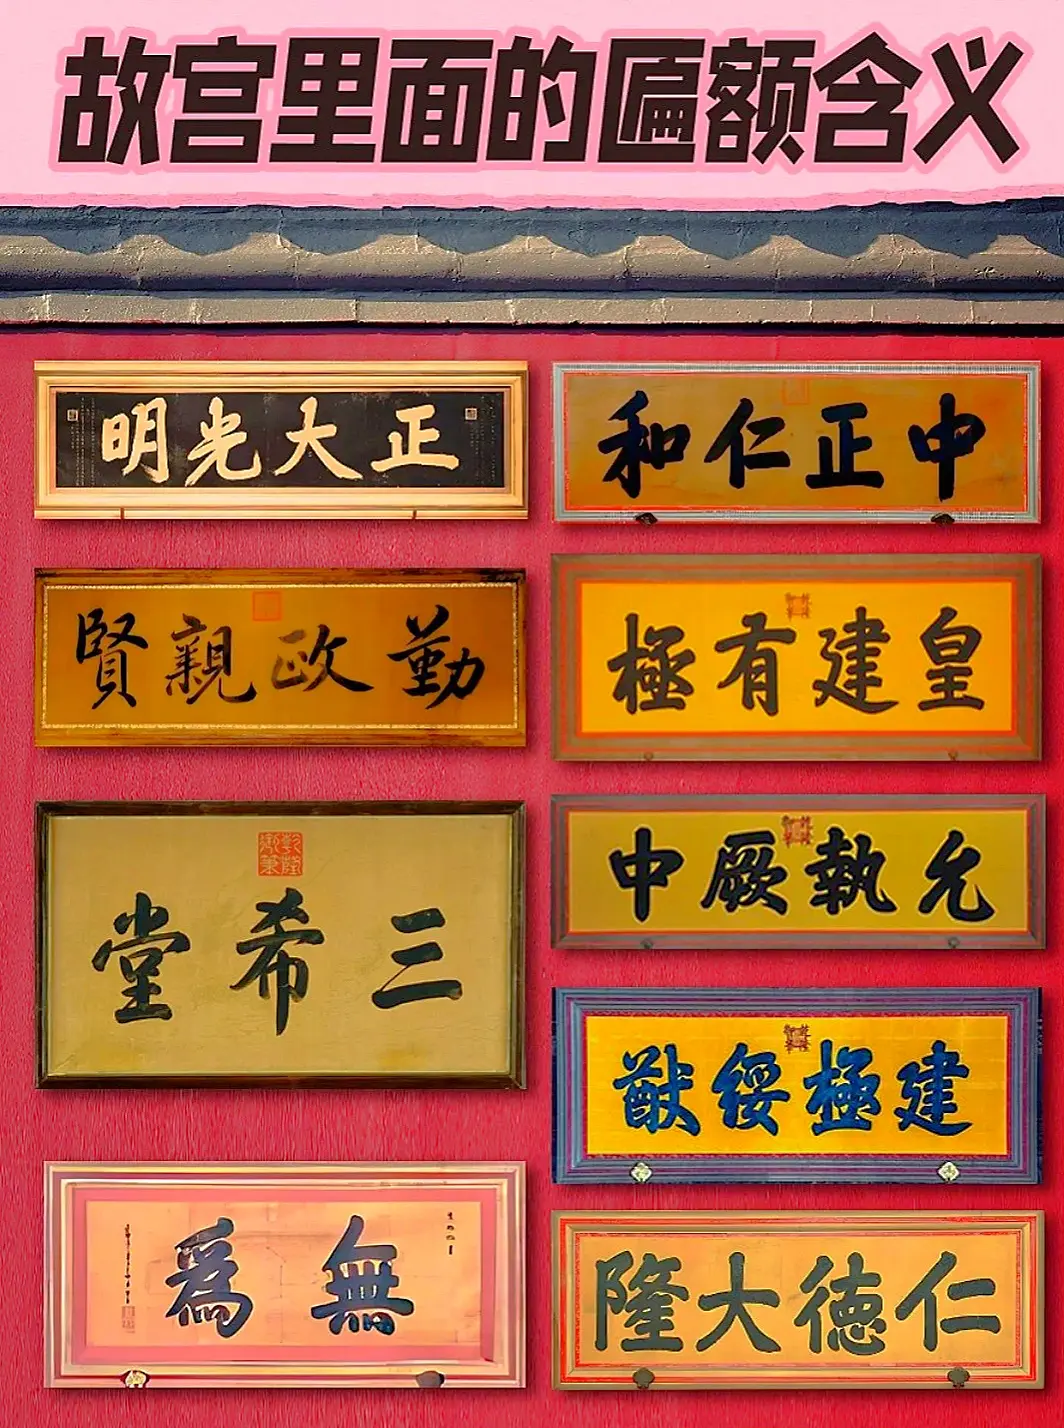 故宫里面的匾额含义
明光大正
和仁正中
賢親政勤
極有建皇
堂希三
中厥執允
猷綏極建
爲無
隆大德仁
乾隆御筆